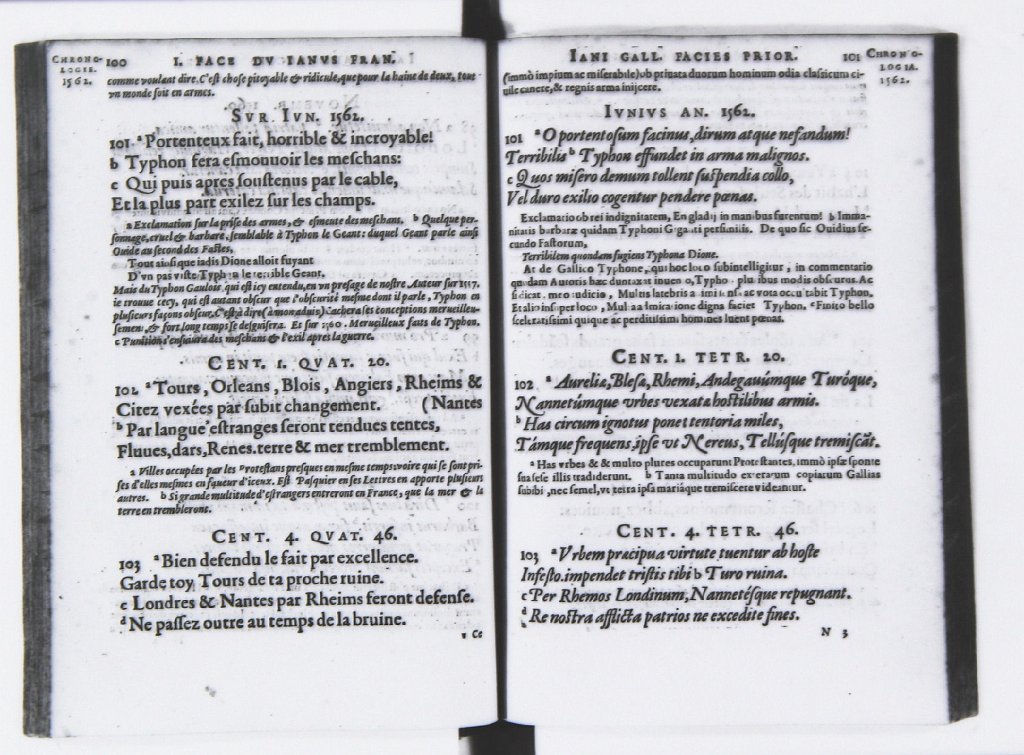 CHRONO-
LOGIE.
1562.
100 I. FACE DV IANVS FRAN.
comme voulant dire. C'est chose pitoyable & ridicule, que pour la haine de deux, tout
vn monde soit en armes.
SVR IVN. 1562.
101 ᵃ Portenteux fait, horrible & incroyable!
b Typhon fera esmouuoir les meschans:
c Qui puis apres soustenus par le cable,
Et la plus part exilez sur les champs.
a Exclamation sur la prise des armes, & esmeute des meschant. b Quelque per-
sonnage, cruel & barbare, semblable à Typhon le Geant: duquel Geant parle ainsi
Ouide au second des Fastes,
Tout ainsi que iadis Dione alloit fuyant
D'vn pas viste Typhon le terrible Geant,
Mais du Typhon Gaulois, qui est icy entendu, en vn presage de nostre Auteur sur 1557.
ie trouue cecy, qui est autant obscur que l'obscurité mesme dont il parle, Typhon en
plusieurs façons obscur. C'est à dire (à mon aduis) Cachera ses conceptions merueilleu-
sement, & fort long temps se desguisera. Et sur 1560. Merueilleux faits de Typhon.
c Punition s'ensuiura des meschans & l'exil apres la guerre.
CENT. 1. QVAT. 20.
102 ᵃ Tours, Orleans, Blois, Angiers, Rheims &
Citez vexées par subit changement. (Nantes
ᵇ Par langue' estranges seront tendues tentes,
Fluues, dars, Renes. terre & mer tremblement.
a Villes occupées par les Protestans presques en mesme temps: voire qui se sont pri-
ses d'elles mesmes en faueur d'iceux. Est Pasquier en ses Lettres en apporte plusieurs
autres. b Si grande multitude d'estrangers entreront en France, que la mer & la
terre en trembleront.
CENT. 4. QVAT. 46.
103 ᵃ Bien defendu le fait par excellence.
Garde toy Tours de ta proche ruine.
c Londres & Nantes par Rheims feront defense.
ᵈ Ne passez outre au temps de la bruine.
Ce
IANI GALL. FACIES PRIOR. 101
CHRONO-
LOGIA.
1562.
(immò impium ac miserabile) ob priuata duorum hominum odia classicum ci-
uile canere, & regnis arma inijcere.
IVNIVS AN. 1562.
101 ᵃ O portentosum facinus, dirum atque nefandum!
Terribilis ᵇ Typhon effundet in arma malignos.
c Quos misero demum tollent suspendia collo,
Vel duro exilio cogentur pendere pœnas.
Exclamatio ob rei indignitatem, En gladij in manibus furentum! b Imma-
nitatis barbaræ quidam Typhoni Giganti persimilis. De quo sic Ouidius se-
cundo Fastorum,
Terribilem quondam fugiens Typhona Dione.
At de Gallico Typhone, qui hoc loco subintelligitur, in commentario
quodam Autoris hæc duntaxat inuenio, Typho pluribus modis obscurus. Ac
si dicat, meo iudicio, Multis latebris animi sensa ac vota occultabit Typhon,
Et alio insuper loco, Multa admiratione digna faciet Typhon. ᶜ Finito bello
sceleratissimi quique ac perditissimi homines luent pœnas.
CENT. 1. TETR. 20.
102 ᵃ Aurelia, Blesa, Rhemi, Andegauúmque Turóque,
Nannetúmque vrbes vexatæ hostilibus armis.
ᵇ Has circum ignotus ponet tentoria miles,
Támque frequens, ipse vt Nereus, Tellúsque tremiscãt.
a Has vrbes & & multo plures occuparunt Protestantes, immò ipsæ sponte
sua sese illis tradiderunt. b Tanta multitudo exterarum copiarum Gallias
subibi, nec semel, vt terra ipsa mariáque tremiscere videantur.
CENT. 4. TETR. 46.
103 ᵃ Vrbem præcipua virtute tuentur ab hoste
Infesto. impendet tristis tibi b Turo ruina.
c Per Rhemos Londinum, Nannetésque repugnant.
ᵈ Re nostra afflicta patrios ne excedite fines.
N 3